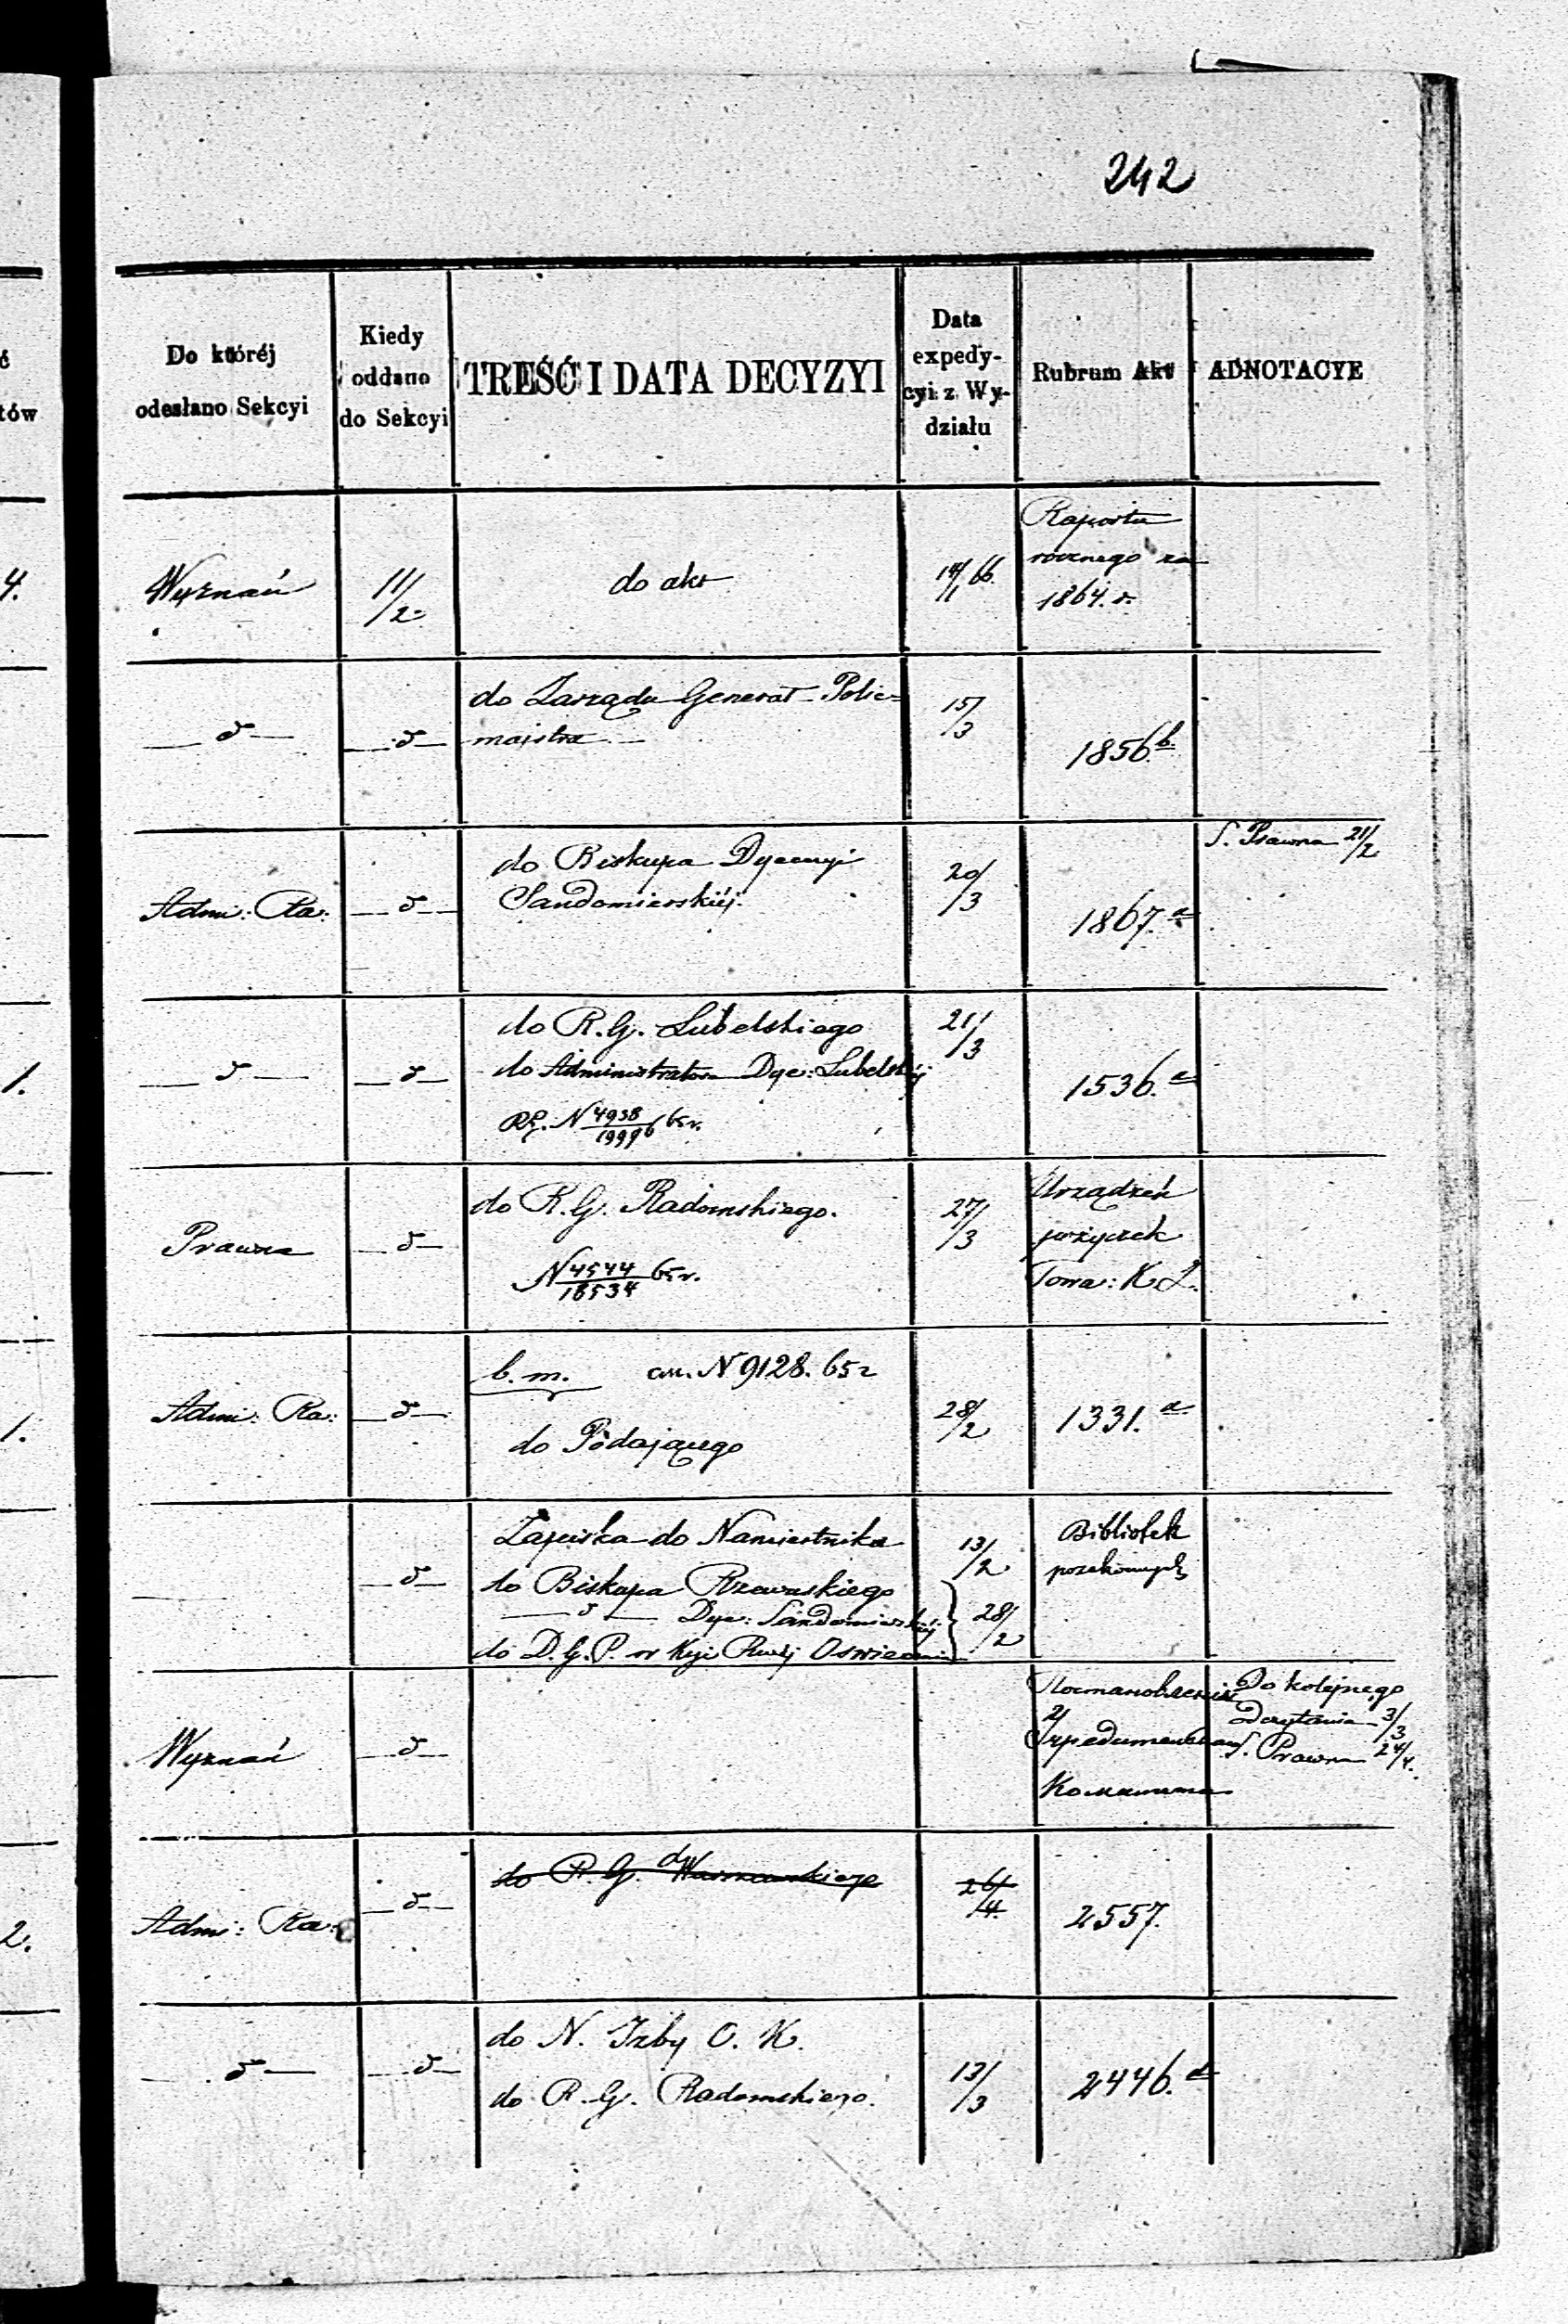 242
Do któréj
odesłano Sekcyi
Kiedy
oddano
do Sekcyi
TREŚĆ I DATA DECYZYI
Data
expedy-
cyi z Wy-
działu
Rubrum Akt
ADNOTACYE
ć
tów
4.
Wyznań
11/2
do akt
14/1 66.
Raportu
rocznego za
1864. r.
— d —
— d —
do Zarządu Generał-Polic=
majstra
15/3
1856 b.
Admi: Ra:
— d —
do Biskupa Dyecezyi
Sandomierskiéj.
20/3
1867. a
S. Prawna 21/2
1.
— d —
— d —
do R. G. Lubelskiego
do Administratora Dye: Lubelskiéj
N 4938/19996 65 r.
21/3
1536. a
Prawna
— d —
do R. G. Radomskiego.
N 4544/18534 65 r.
27/3
Urządzeń
pożyczek
Towa: K Z.
1.
Admi: Ra:
— d —
b. m. an. N 9128. 65 r
do Podającego
28/2
1331. a
— d —
Zapiska do Namiestnika
do Biskupa Rzewuskiego
— d — Dye: Sandomierskiéj
do D. G. P. w Kyi Rząj Oświecenia
13/2
28/2
Bibliotek
Wyznań
— d —
Do kolejnego
Odczytania 3/3
S. Prawna 24/4.
2.
Admi: Ra:
— d —
do R. G. Warszawskiego
26/4.
2557.
— d —
— d —
do N. Izby O. K.
do R. G. Radomskiego.
13/3
2446. a